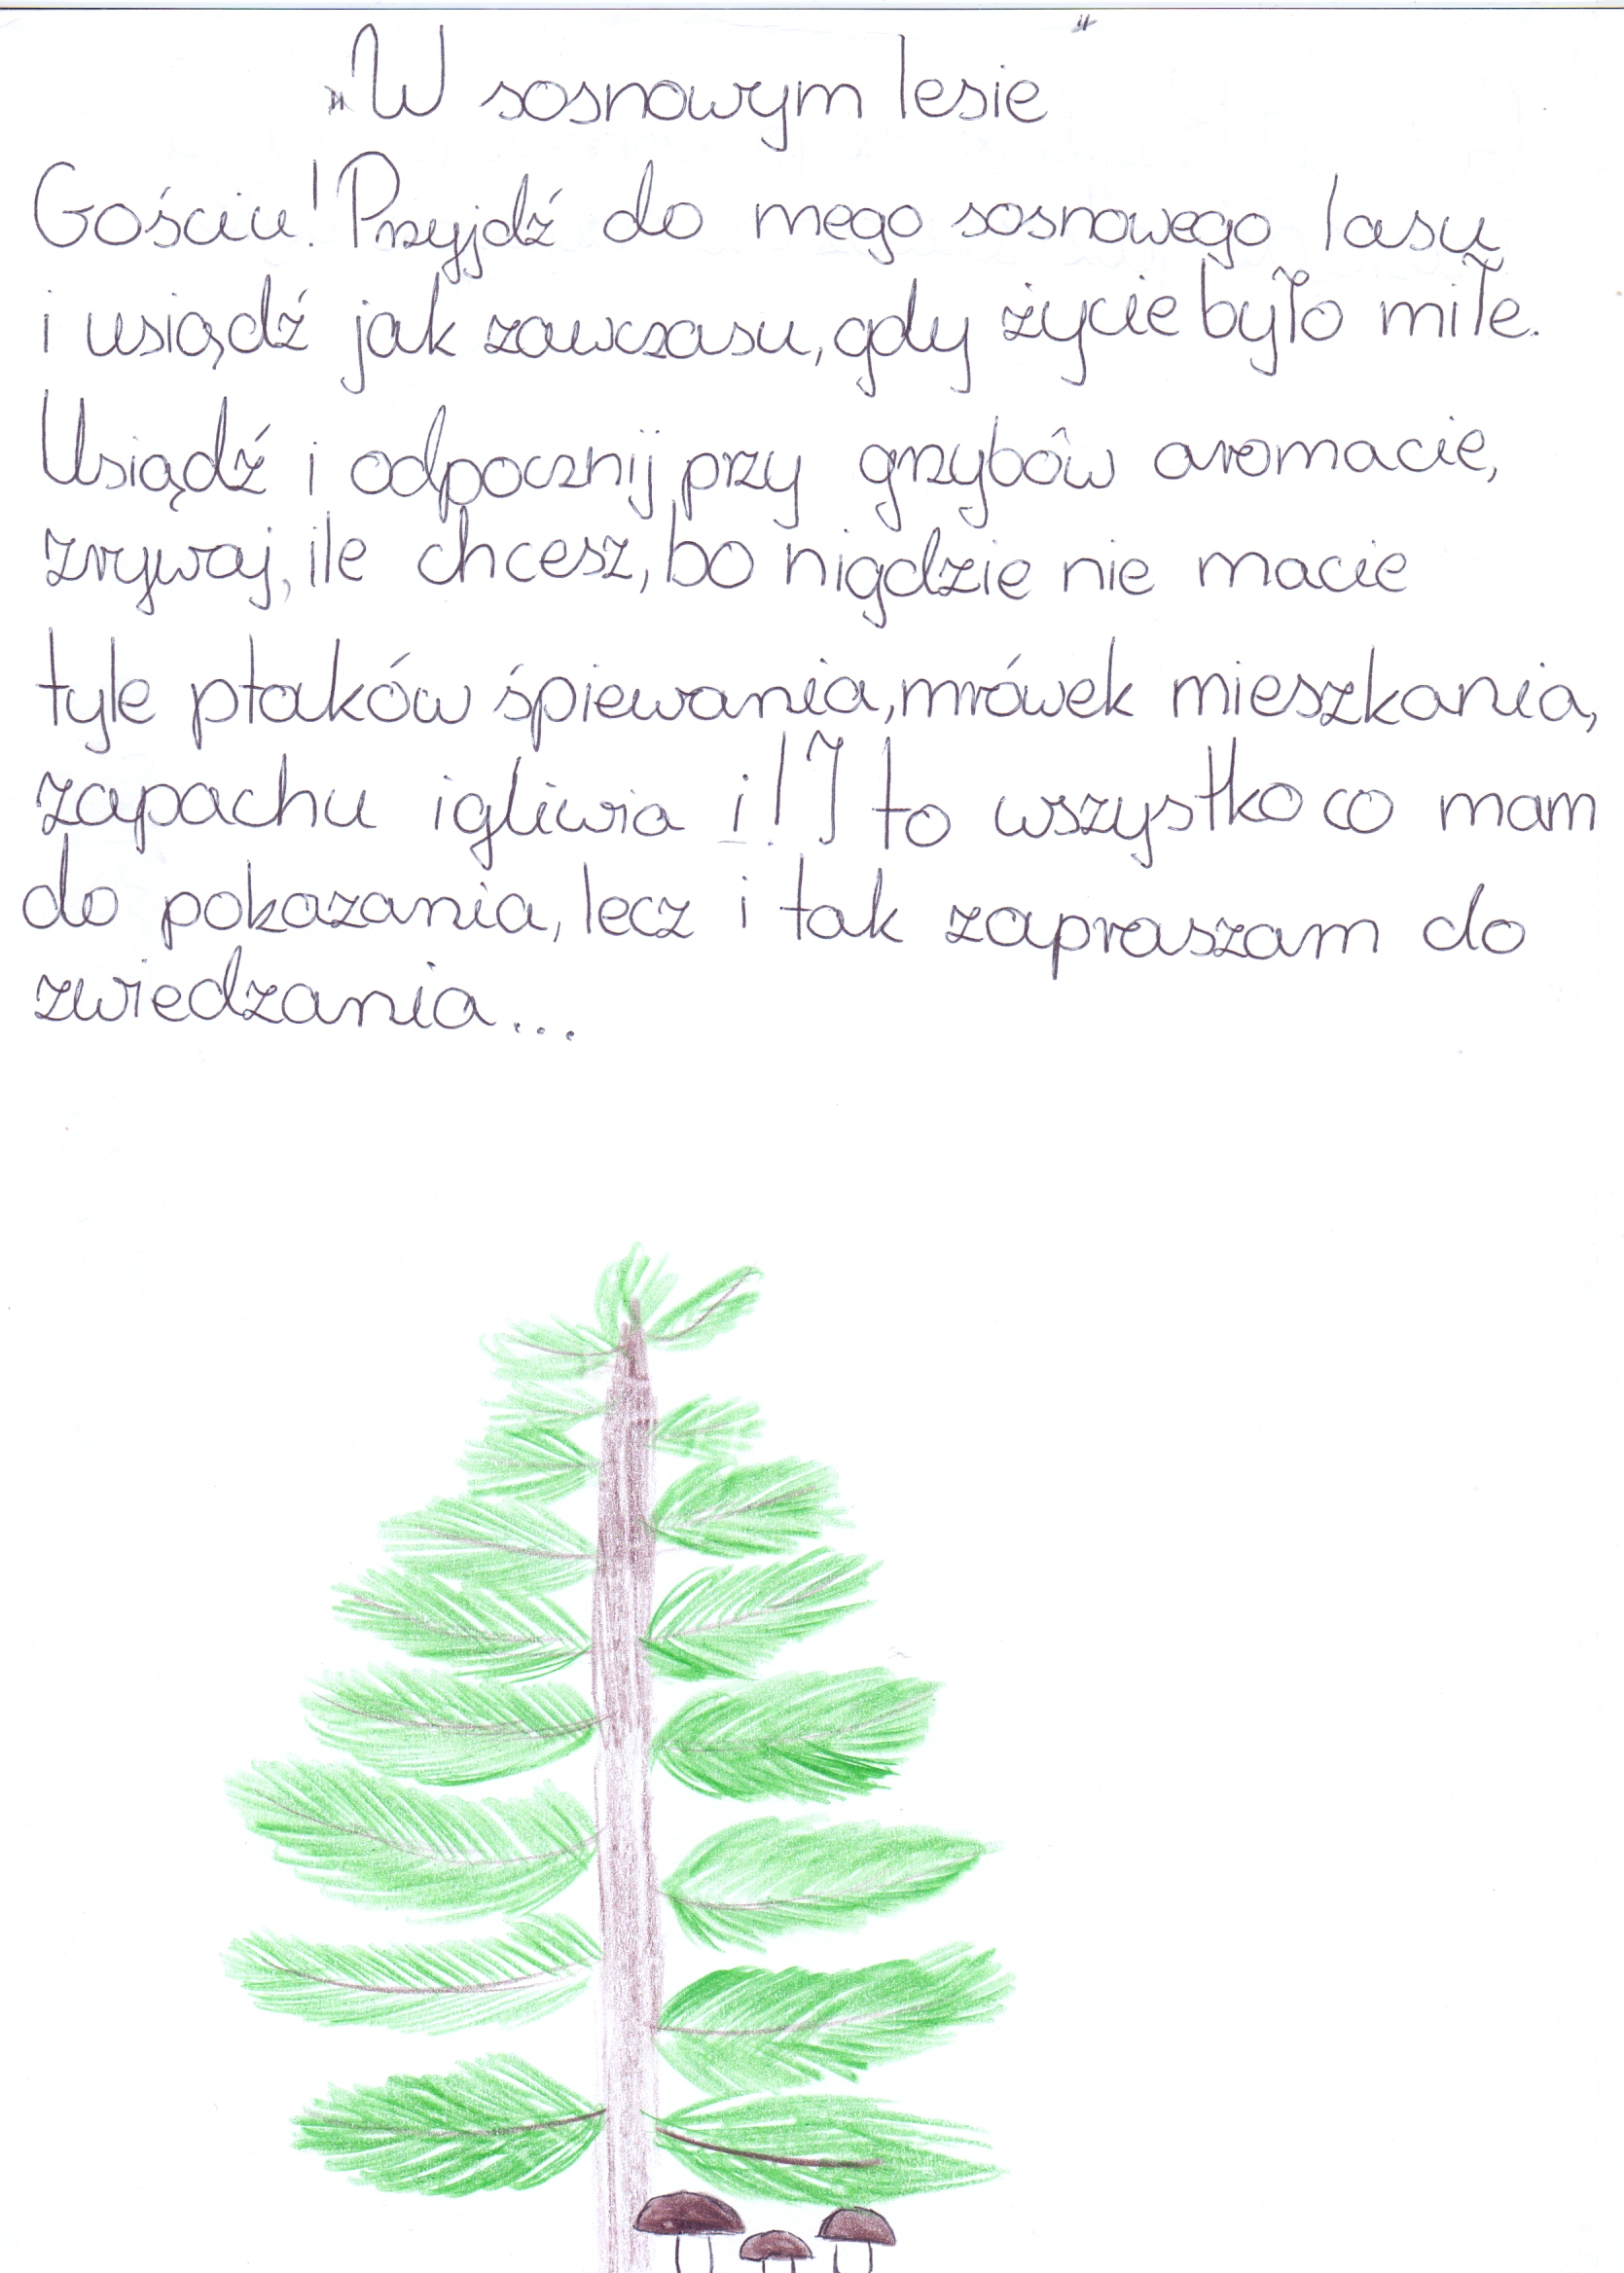 „W sosnowym lesie”
Gościu! Przyjdź do mego sosnowego lasu
i usiądź jak zawczasu, gdy życie było miłe.
Usiądź i odpocznij przy grzybów aromacie,
zrywaj, ile chcesz, bo nigdzie nie macie
tyle ptaków śpiewania, mrówek mieszkania,
zapachu igliwia i! I to wszystko co mam
do pokazania, lecz i tak zapraszam do
zwiedzania...